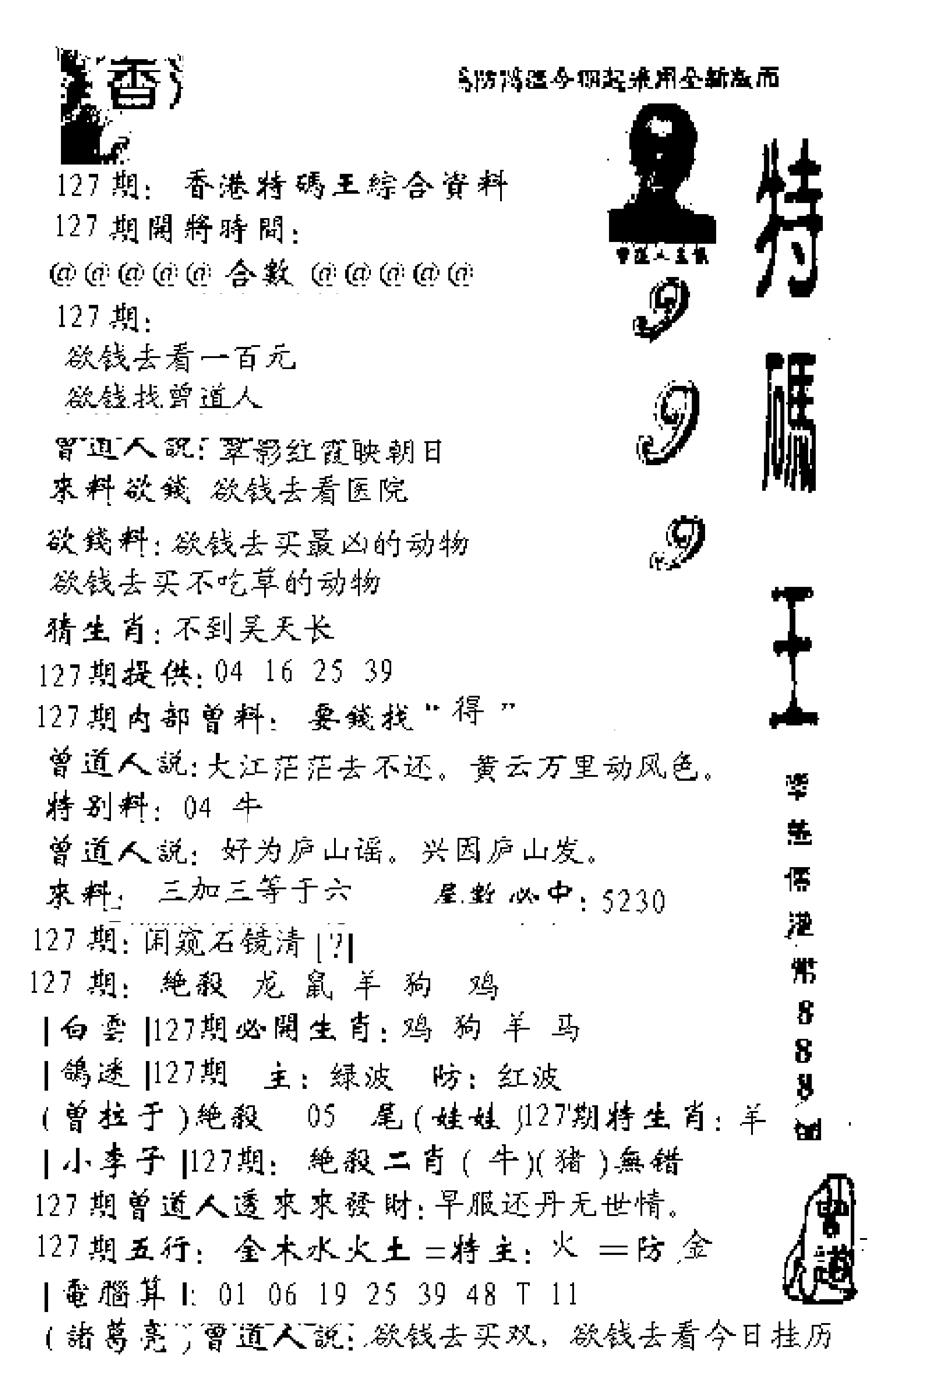 香氵
為防偽造今期起采用全新版面
127期：香港特碼王綜合資料
127期開將時間：
@@@@@合數@@@@@
127期：
欲钱去看一百元
欲钱找曾道人
曾道人説：翠影红霞映朝日
來料欲錢 欲钱去看医院
欲錢料：欲钱去买最凶的动物
欲钱去买不吃草的动物
猜生肖：不到吴天长
127期提供：04 16 25 39
127期内部曾料：要錢找“得”
曾道人説：大江茫茫去不还。黄云万里动风色。
特别料：04 牛
曾道人説：好为庐山谣。兴因庐山发。
來料：三加三等于六 尾數必中：5230
127期：闲窥石镜清|?|
127期：絶殺 龙 鼠 羊 狗 鸡
|白雲|127期必開生肖：鸡 狗 羊 马
|鴿迷|127期 主：绿波 防：红波
(曾拉于)絶殺 05 尾(娃娃)127期特生肖：羊
|小李子|127期：絶殺二肖(牛)(猪)無錯
127期曾道人透來來發財：早服还丹无世情。
127期五行：金木水火土=特主：火 =防 金
|電腦算|：01 06 19 25 39 48 T 11
(諸葛亮)曾道人説：欲钱去买双，欲钱去看今日挂历
曾道人主俵
9
9
9
特碼王
港幣888
曾道